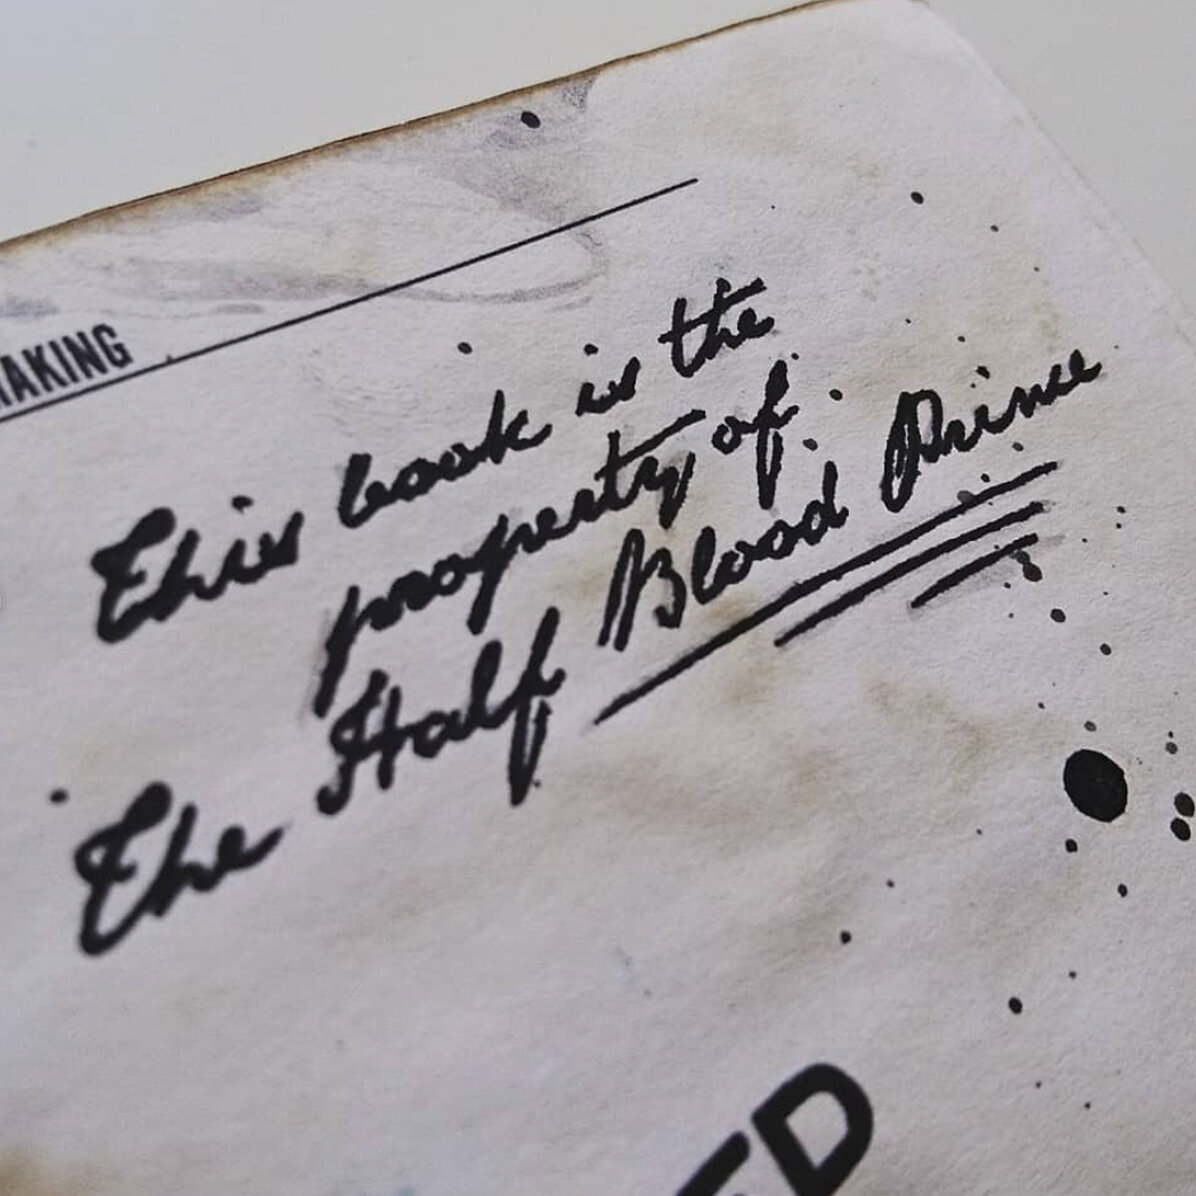 AKING
This book is the
property of
The Half Blood Prince
ED